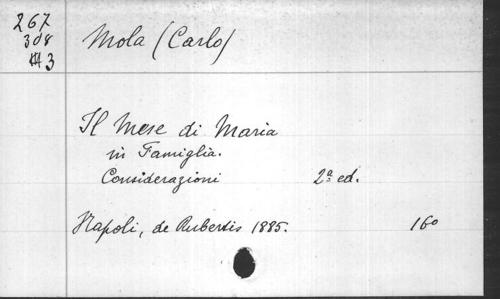 267
308
3
Mola (Carlo)
Il Mese di Maria
in Famiglia.
Considerazioni 2ª ed.
Napoli, de Rubertis 1885. 16º